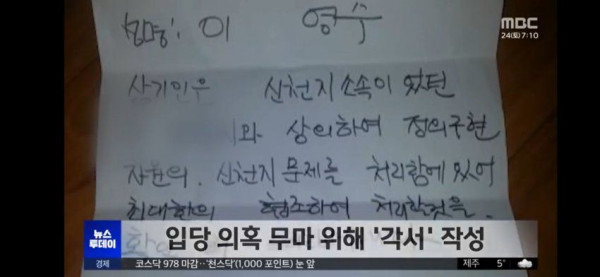 성명: 이 영수
MBC
24(토) 7:10
상기인은 신천지 소속이 었던
와 상의하여 정의구현
차원의. 신천지 문제를 처리함에 있어
최대한의 협조하여 처리할것을.
뉴스
투데이
입당 의혹 무마 위해 '각서' 작성
경제
코스닥 978 마감‥'천스닥'(1,000 포인트) 눈 앞
제주 5°